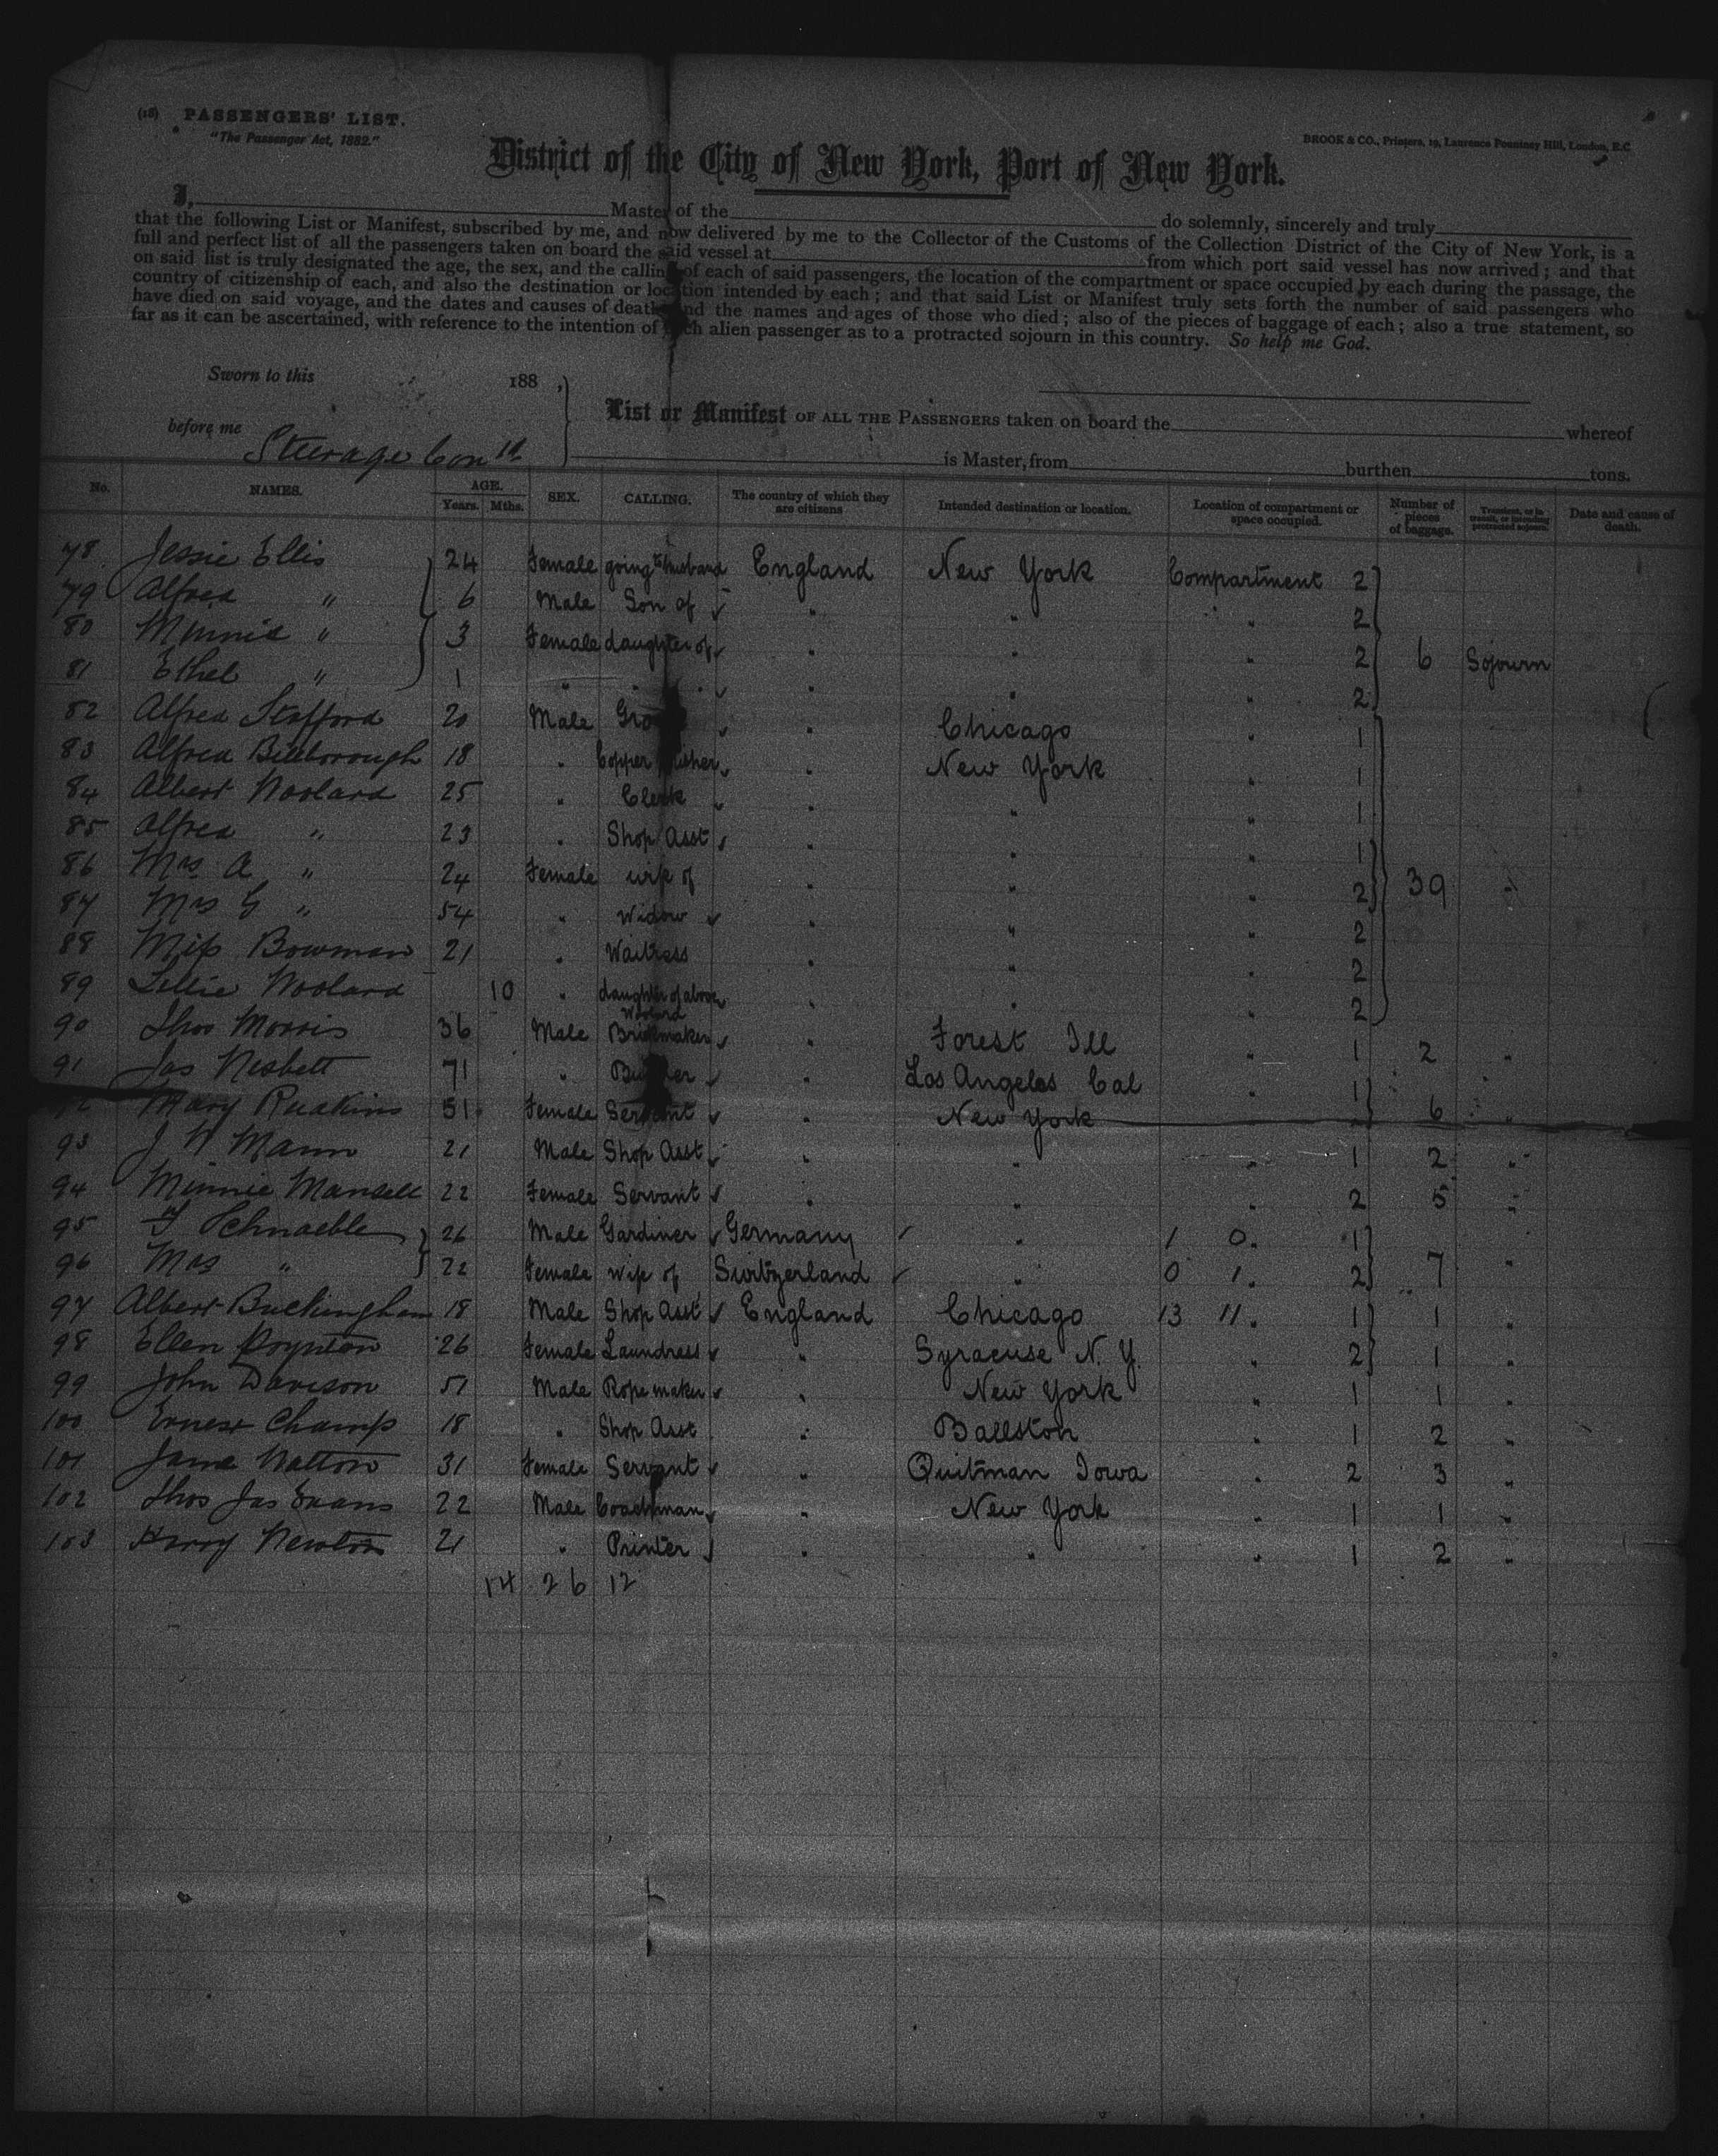 (18) PASSENGERS' LIST.
"The Passenger Act, 1882."
BROOK & CO., Printers, 19, Laurence Pountney Hill, London, E.C.
District of the City of New York, Port of New York.
I, Master of the do solemnly, sincerely and truly
that the following List or Manifest, subscribed by me, and now delivered by me to the Collector of the Customs of the Collection District of the City of New York, is a
full and perfect list of all the passengers taken on board the said vessel at from which port said vessel has now arrived; and that
on said list is truly designated the age, the sex, and the calling of each of said passengers, the location of the compartment or space occupied by each during the passage, the
country of citizenship of each, and also the destination or location intended by each; and that said List or Manifest truly sets forth the number of said passengers who
have died on said voyage, and the dates and causes of death and the names and ages of those who died; also of the pieces of baggage of each; also a true statement, so
far as it can be ascertained, with reference to the intention of each alien passenger as to a protracted sojourn in this country. So help me God.
Sworn to this 188 ,
before me
List or Manifest OF ALL THE PASSENGERS taken on board the whereof
Steerage Con^d
is Master, from burthen tons.
No. NAMES. AGE. Years. Mths. SEX. CALLING. The country of which they are citizens Intended destination or location. Location of compartment or space occupied. Number of pieces of baggage. Transient, or in transit, or intending protracted sojourn. Date and cause of death.
78 Jessie Ellis 24 Female going to husband England New York Compartment 2
79 Alfred " 6 Male Son of " " " 2
80 Minnie " 3 Female daughter of " " " 2 6 Sojourn
81 Ethel " 1 " " " " " 2
82 Alfred Stafford 20 Male " Chicago " 1
83 Alfred Billborough 18 " Copper " New York " 1
84 Albert Woolard 25 " Clerk " " " 1
85 Alfred " 23 " Shop Asst " " " 1
86 Mrs A " 24 Female wife of " " " 2 39 "
87 Mrs G " 54 " Widow " " " 2
88 Miss Bowman 21 " Waitress " " " 2
89 Lillie Woolard 10 " daughter of above Woolard " " " 2
90 Thos Morris 36 Male Brickmaker " Forest Ill " 1 2 "
91 Jas Nesbett 71 " " Los Angeles Cal " 1
92 Mary 51 Female Servant " New York 6 "
93 J W Mann 21 Male Shop Asst " " " 1 2 "
94 Minnie Mansell 22 Female Servant " " " 2 5 "
95 Schnaeble 26 Male Gardiner Germany " 1 0 " 1
96 Mrs " 22 Female wife of Switzerland " 0 1 " 2 7 "
97 Albert Buckingham 18 Male Shop Asst England Chicago 13 11 " 1 1 "
98 Ellen Poynton 26 Female Laundress " Syracuse N.Y. " 2 1 "
99 John Davison 51 Male Rope maker " New York " 1 1 "
100 Ernest Champ 18 " Shop Asst " Ballston " 1 2 "
101 Jane Watton 31 Female Servant " Quitman Iowa " 2 3 "
102 Thos Jas Evans 22 Male Coachman " New York " 1 1 "
103 Harry Newton 21 " Printer " " " 1 2 "
14 26 12